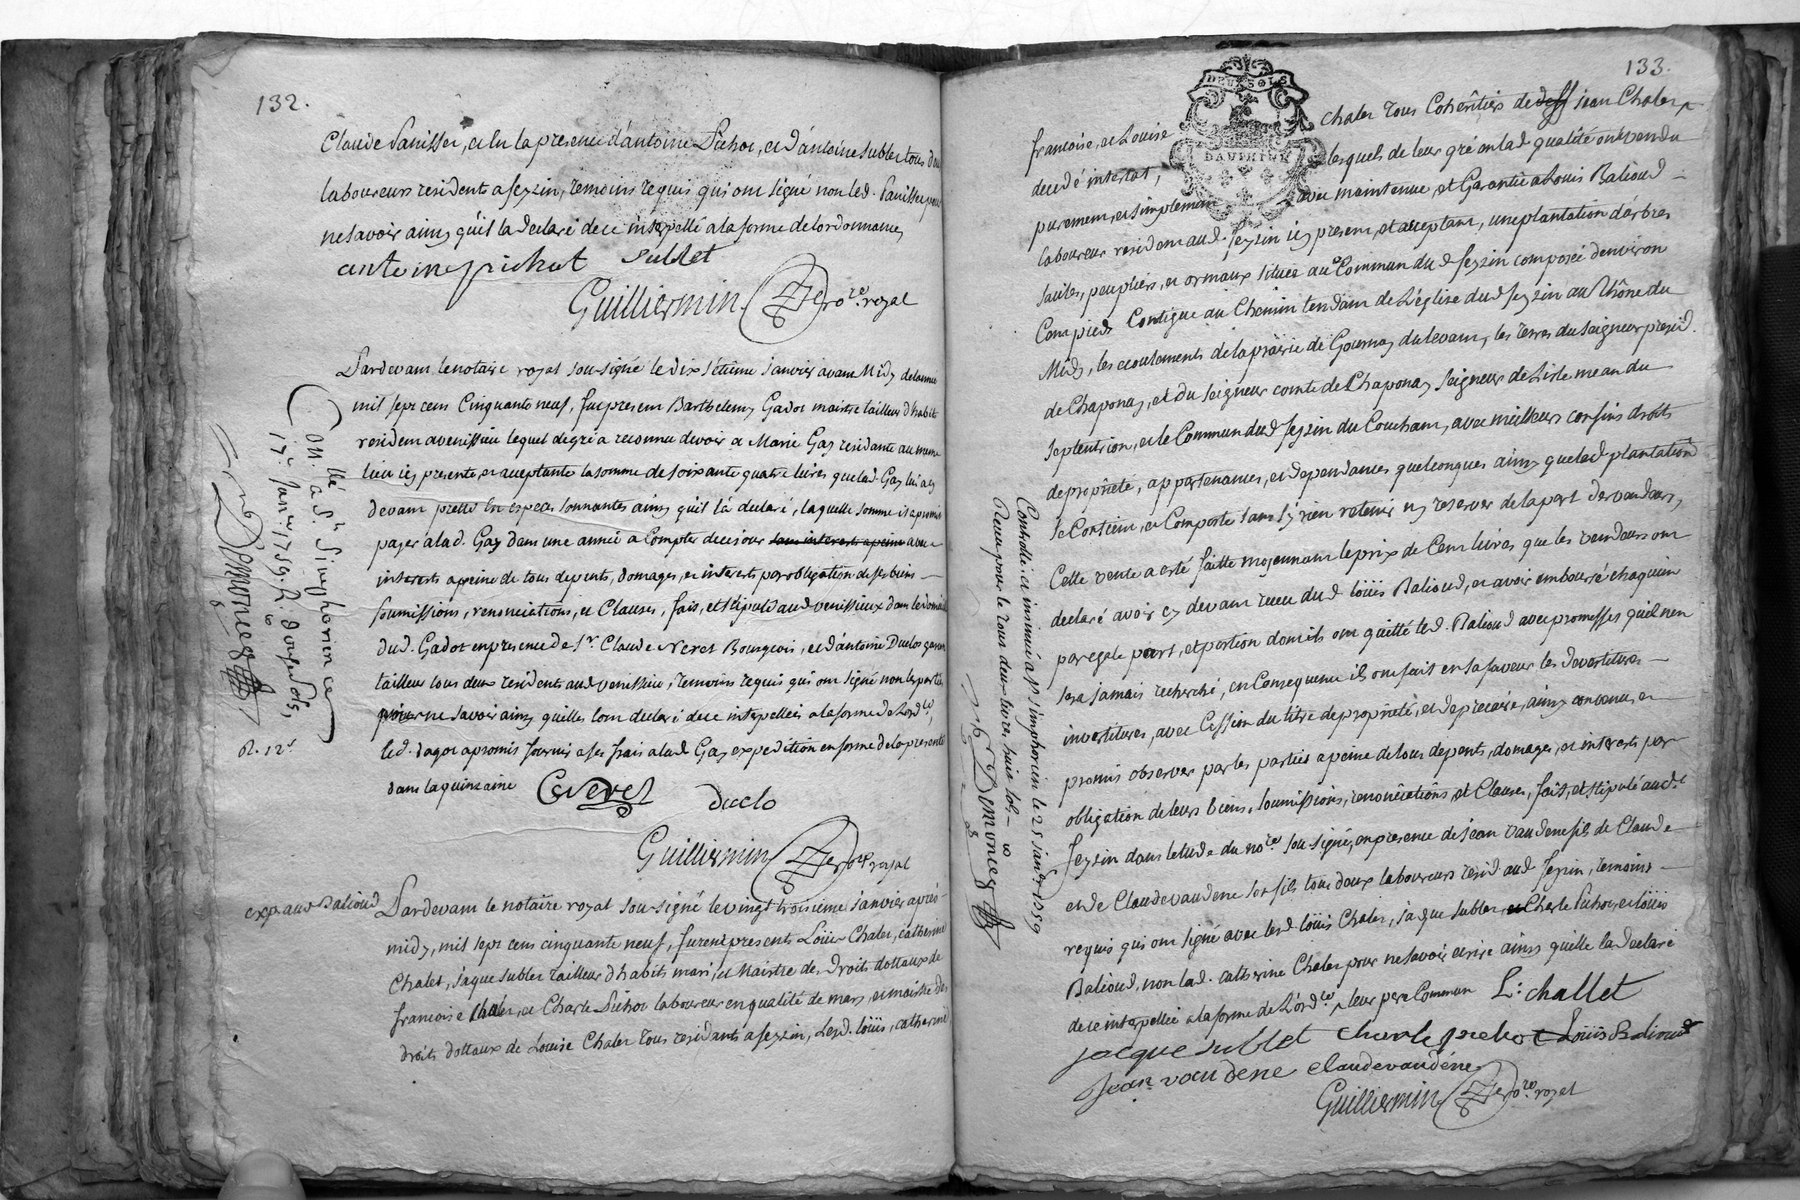 132.
Claude Panisset, et en la presence d'antoine Pichot, et d'antoine sublet tous deux
laboureurs residents a feyzin, temoins requis qui ont signé non led. Panisset pour
ne savoir ainsy qu'il la declaré de ce interpellé a la forme de lordonnance,
antoine pichat sublet
Guilliermin no.re royal
Pardevant le notaire royal sou-signé le dix sétieme janvier avant Midy de lannée
mil sept cens Cinquante neuf, fut present Barthelemy Gadot maistre tailleur d'habits
resident a venissieu lequel de gré a reconnu devoir a Marie Gay residante au meme
lieu icy presente, et acceptante la somme de soixante quatre livres que lad. Gay lui a cy
devant pretté en especes sonnantes ainsy quil la declaré, laquelle somme il a promis
payer a lad. Gay dans une année a Compter de ce jour sans interest a peine avec
interests a peine de tous depents, domages, et interests par obligation de ses biens
soumissions, renonciations, et Clauses, fait, et stipulé aud venissieux dans le domicile
dud. Gadot en presence de S.r Claude Neret Bourgeois, et d'antoine Duclos garçon
tailleur tous deux residents aud venissieu, temoins requis qui ont signé non les parties
pour ne savoir ainsy quelles l'ont declaré de ce interpellées a la forme de Lord.ce,
led. dagot a promis fournir a ses frais a lad Gay expedition en forme de la presente
dans la quinzaine C Neret duclo
Guilliermin no.re royal
on.llé a S.t Simphorien ce
17.e jan.er 1759. R. douze sols,
Demonceq
R. 12.s
exp. au.d Balioud
Pardevant le notaire royal sou-signé le vingt troisieme janvier aprés
midy, mil sept cens cinquante neuf, furent presents Loüis Chalet, catherine
Chalet, jaque sublet tailleur d'habits mari, et Maistre des Droits dottaux de
francoise Chalet, et Charle Pichot laboureur en qualité de mary, et maistre des
droits dottaux de Louise Chalet tous residants a feyzin, Lesd. loüis, catherine
133.
DEUX SOLS
DAUPHINE
francoise, et Louise Chalet tous Coheritiers de deff jean Chalet
decedé intestat, lesquels de leur gré en lad qualité ont vendu
purement, et simplement avec maintenue, et Garantie a Louis Balioud
laboureur resident aud. feyzin icy present, et acceptant, une plantation d'arbres
saules, peupliers, et ormaux située au Commun dud feyzin composée d'environ
Cent pieds Contigue au Chemin tendant de l'église dud feyzin au Rhône du
Midy, les ecoulements de la prairie de Gournay du levant, les terres du seigneur presid.
de Chaponay, et du seigneur comte de Chaponay seigneur de Lisle mean du
septentrion, et le Commun dud feyzin du Couchant, avec meilleurs confins droits
de proprieté, appartenances, et dependances quelconques ainsy que lad plantation
se Contient, et Comporte sans s'y rien retenir ny reserver de la part des vendeurs,
Cette vente a eté faitte moyennant le prix de Cent livres que les vendeurs ont
declaré avoir cy devant receu dud loüis Balioud, et avoir emboursé chaquun
par egale part, et portion dont ils ont quitté led. Balioud avec promesses quil n'en
sera jamais recherché, en Consequence ils ont fait en sa faveur les devestitures
investitures, avec Cession du titre de proprieté, et de precaire, ainsy convenu, et
promis observer par les parties a peine de tous depents, domages, et interests par
obligation de leurs biens, soumissions, renonciations, et Clauses, fait, et stipulé aud.t
feyzin dans letude du no.re sou-signé, en presence de jean vaudene fils de Claude
et de Claude vaudene son fils tous deux laboureurs resid. aud feyzin, temoins
requis qui ont signé avec lesd. loüis Chalet, jaque sublet, et Charle Pichot, et loüis
Balioud, non lad. catherine Chalet pour ne savoir ecrire ainsy quelle la declaré
de ce interpellée a la forme de L'ord.ce leur pere Commun L: challet
jacque sublet charle pichot Loüis Balioud
jean vaudene claude vaudéne
Guilliermin no.re royal
Controllé, et insinué a S.t simphorien le 25 jan.er 1759
Receu pour le tous deux livres huit sols
Demonceq